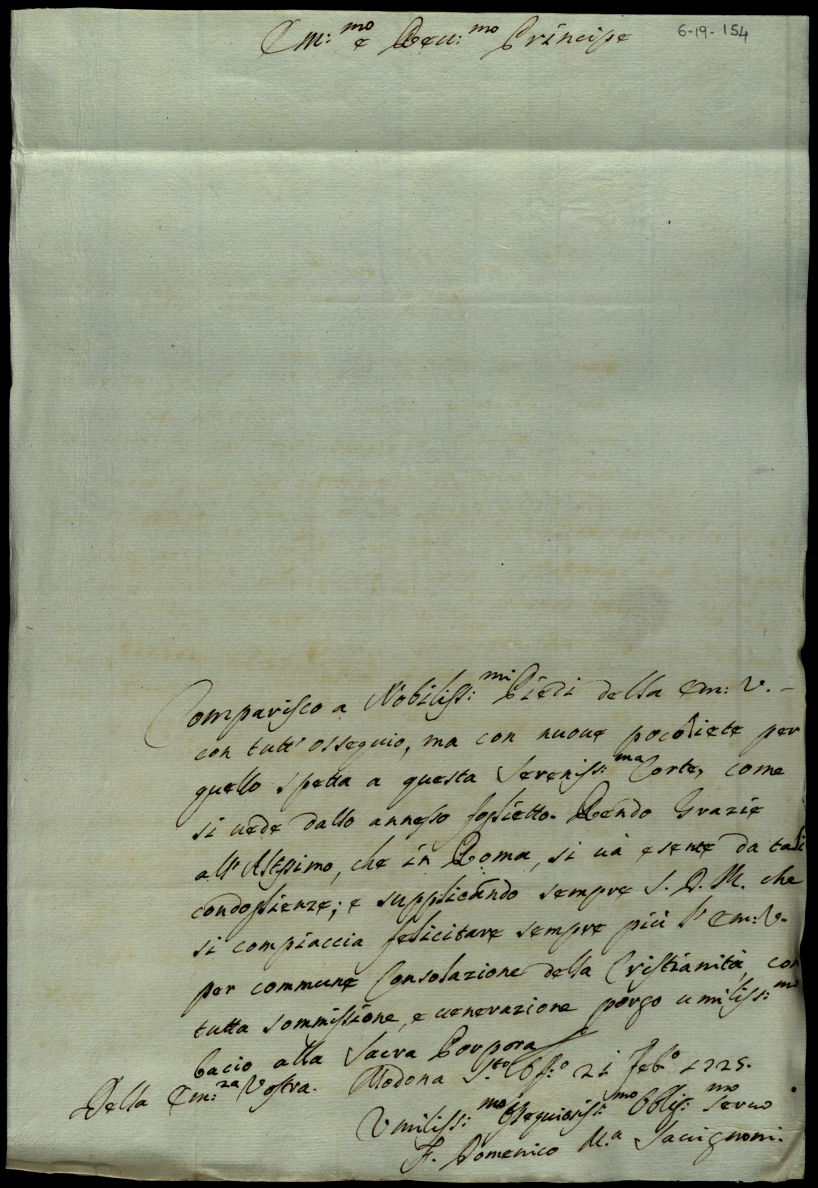 Em:mo e Reu:mo Principe
6-19-154
Comparisco a Nobiliss:mi Piedi della Em: V. -
con tutt' osseguio, ma con nuoue poco liete per
quello spetta a questa Sereniss:ma Corte, come
si uede dallo annesso foglietto. Rendo Grazie
all' Altissimo, che in Roma, si uà esente da tali
condoglienze; e supplicando sempre S. D. M. che
si compiaccia felicitare sempre più l' Em: V.
per commune Consolazione della Cristianità, con
tutta sommissione, e uenerazione porgo umiliss:mo
bacio alla Sacra Porpora
Della Em:za Vostra. Modona S.to Off.o 21 Feb.o 1725.
Vmiliss:mo Osseguiosiss:mo Obblig:mo seruo
F. Domenico M.a Sauignoni.